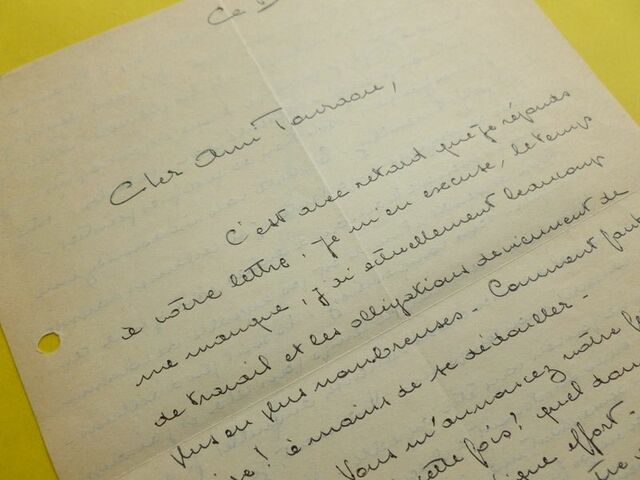 Ce
Cher Ami
C'est avec retard que je réponds
à votre lettre, je m'en excuse, le temps
me manque, j'ai actuellement beaucoup
de travail et les obligations deviennent de
plus en plus nombreuses - Comment
! à moins de se dédailler -
Vous m'annoncez votre
cette fois! quel
effort -